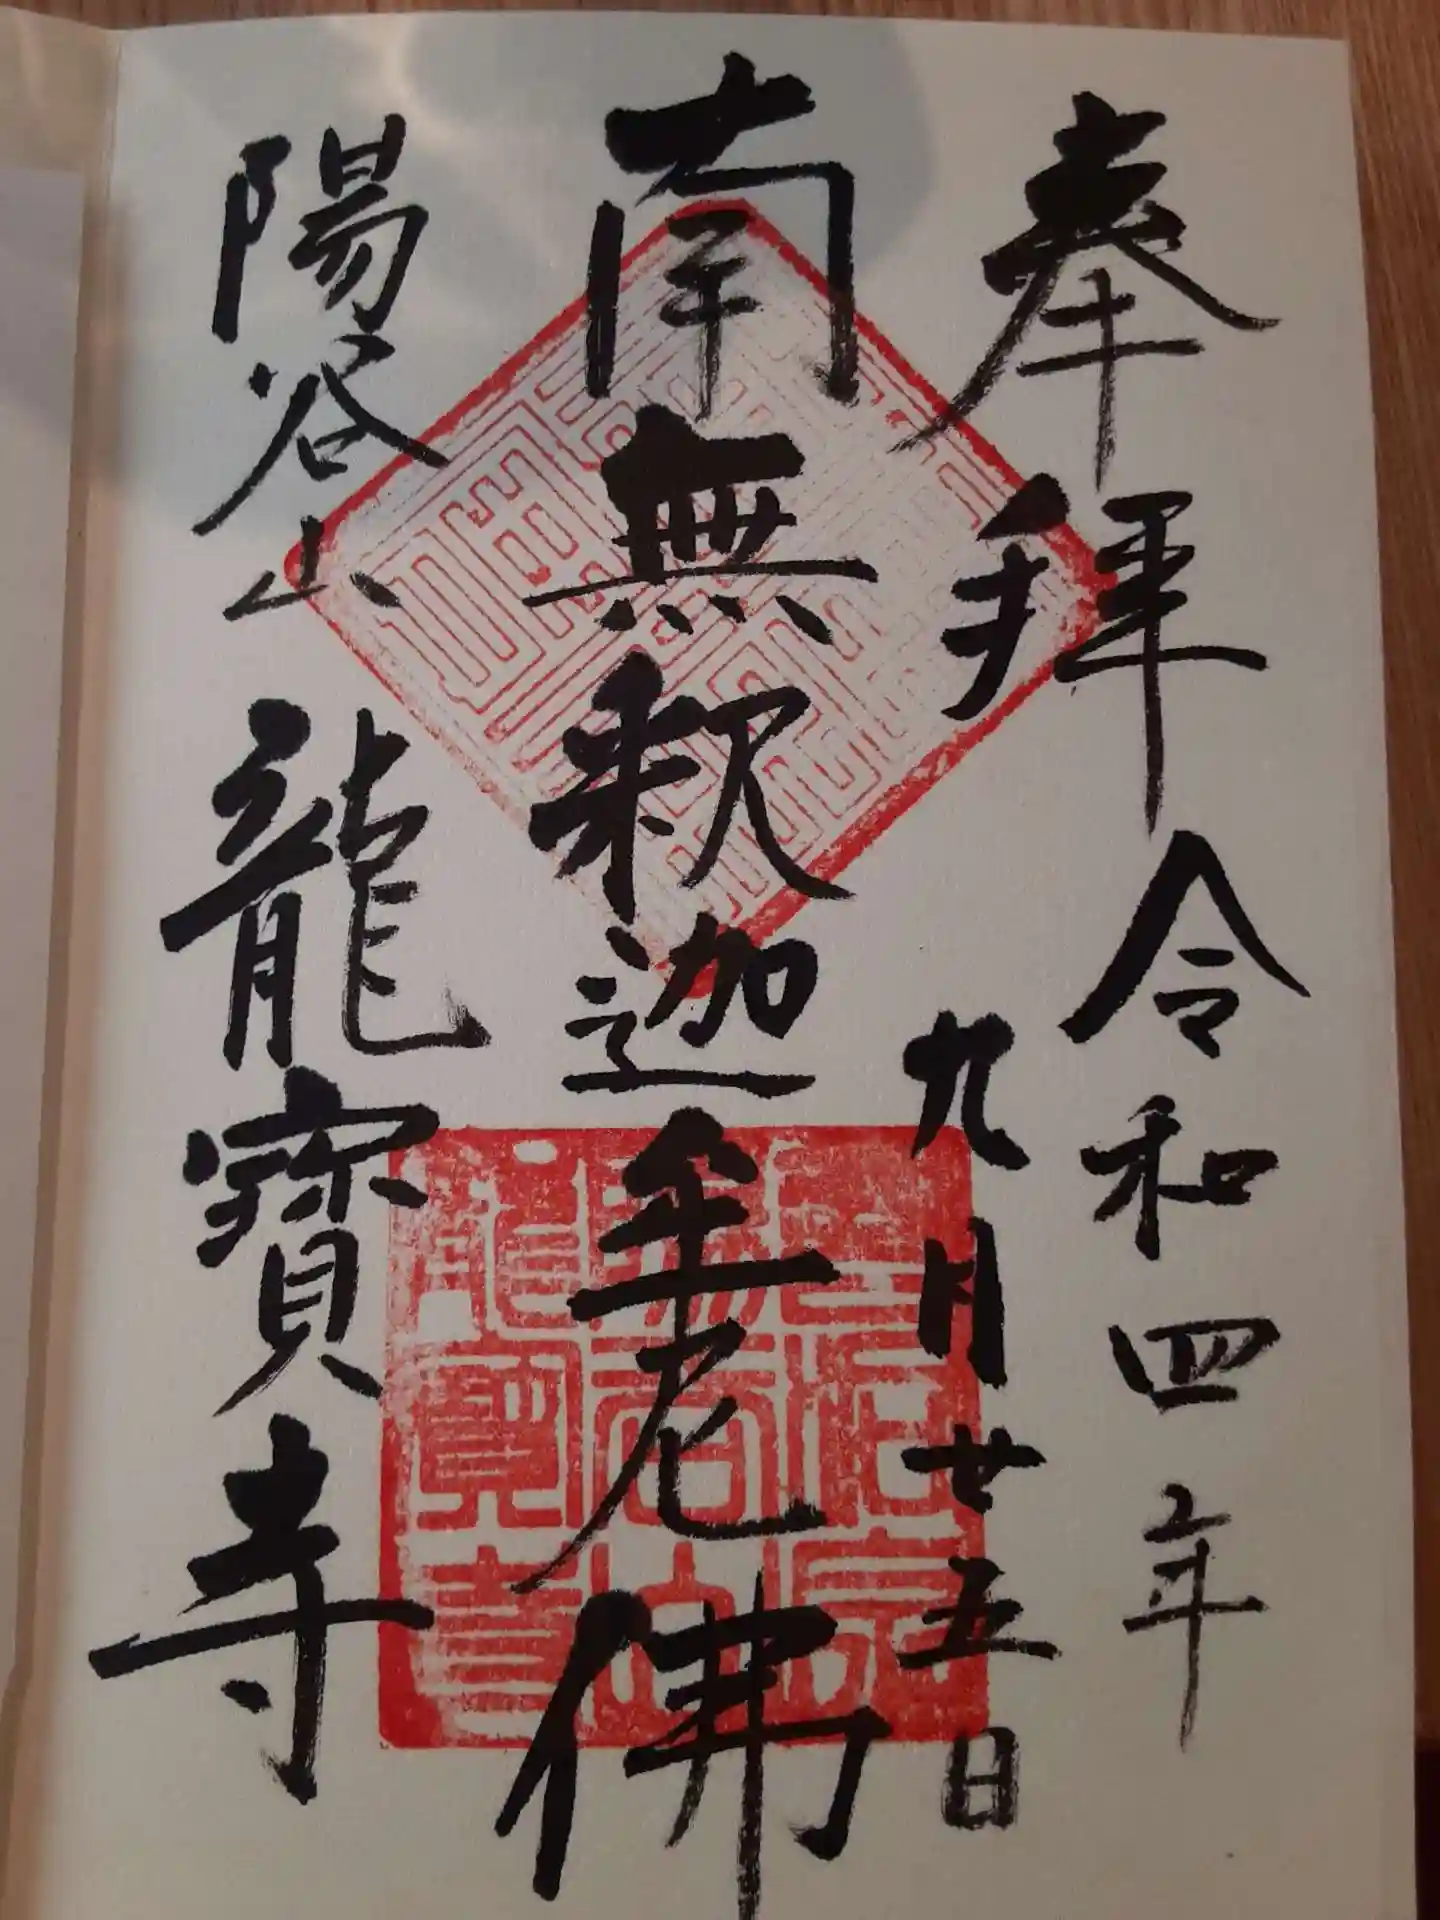 奉拜
令和四年
九月廿五日
南無釈迦牟尼佛
陽谷山
龍寶寺